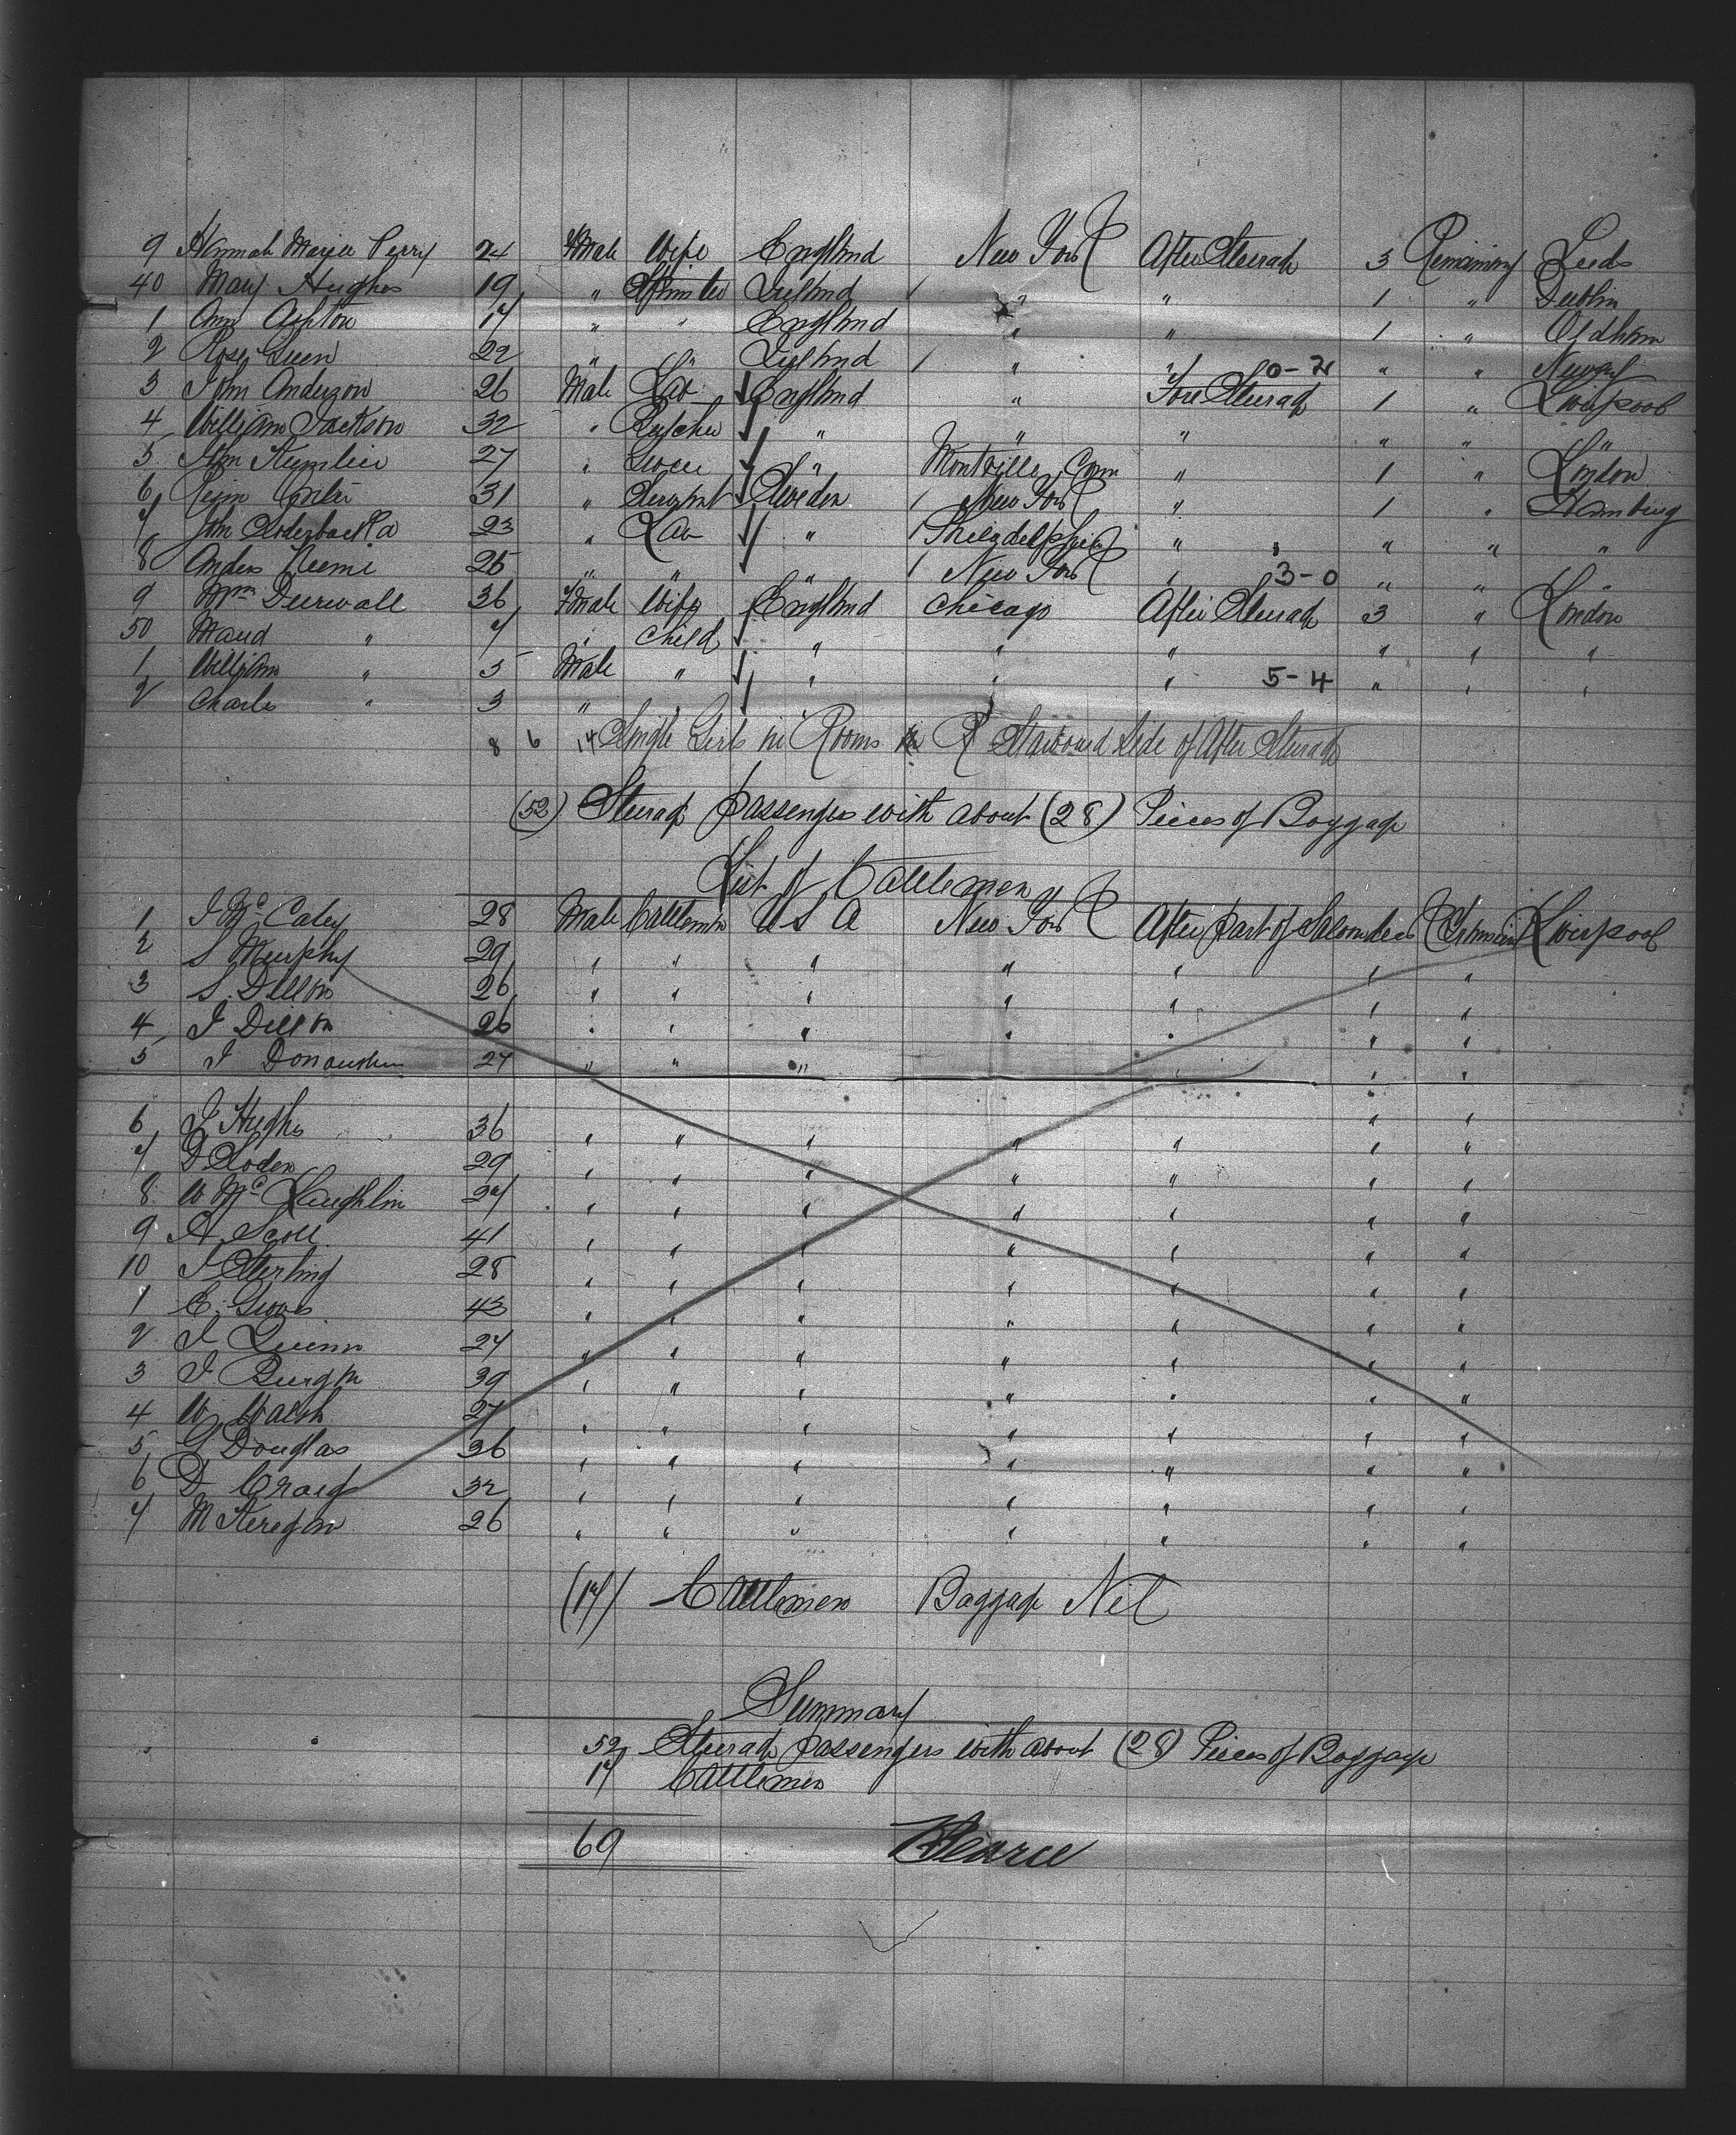 9 Hannah Maria Perry 24 Fmale Wife England New York After Steerage 3 Remaining Leeds
40 Mary Hughes 19 " Spinster Ireland / " " 1 " Dublin
1 Ann Ashton 17 " " England " " 1 " Oldham
2 Rose Green 22 " " Ireland / " " 0-2 " " Newry
3 John Anderson 26 Male Lab England " Fore Steerage 1 " Liverpool
4 William Jackson 32 " Butcher " " " " " "
5 John 27 " Grocer " Montville Conn " 1 " London
6 31 " Servant Sweden / New York " 1 " Hamburg
7 John 23 " Lab " / Philadelphia " " " "
8 Anders Niemi 25 " " " / New York " 3-0 " " "
9 Mrs 36 Fmale Wife England Chicago After Steerage 3 " London
50 Maud " 7 " Child " " " " " "
1 William " 5 Male " " " " 5-4 " " "
2 Charles " 3 "
8 6 14 Single Girls in Rooms Starboard Side of After Steerage
(52) Steerage passengers with about (28) Pieces of Baggage
List of Cattlemen
1 J McCaley 28 Male Cattleman U S A New York After part of Saloon deck Liverpool
2 S Murphy 29 " " " " " " "
3 S. Dillon 26 " " " " " " "
4 J Dillon 26 " " " " " " "
5 J 27 " " " " " "
6 J Hughes 36 " " " " " " "
7 D Loden 29 " " " " " " "
8 W McLaughlin 27 " " " " " " "
9 A Scott 41 " " " " " " "
10 J Sterling 28 " " " " " " "
1 E. Groves 43 " " " " " " "
2 J Quinn 27 " " " " " " "
3 J 39 " " " " " " "
4 W Walsh 27 " " " " " " "
5 G Douglas 36 " " " " " " "
6 D Craig 32 " " " " " " "
7 M Keregan 26 " " " " " " "
(17) Cattlemen Baggage Nil
Summary
52 Steerage passengers with about (28) Pieces of Baggage
17 Cattlemen
69 Pearce